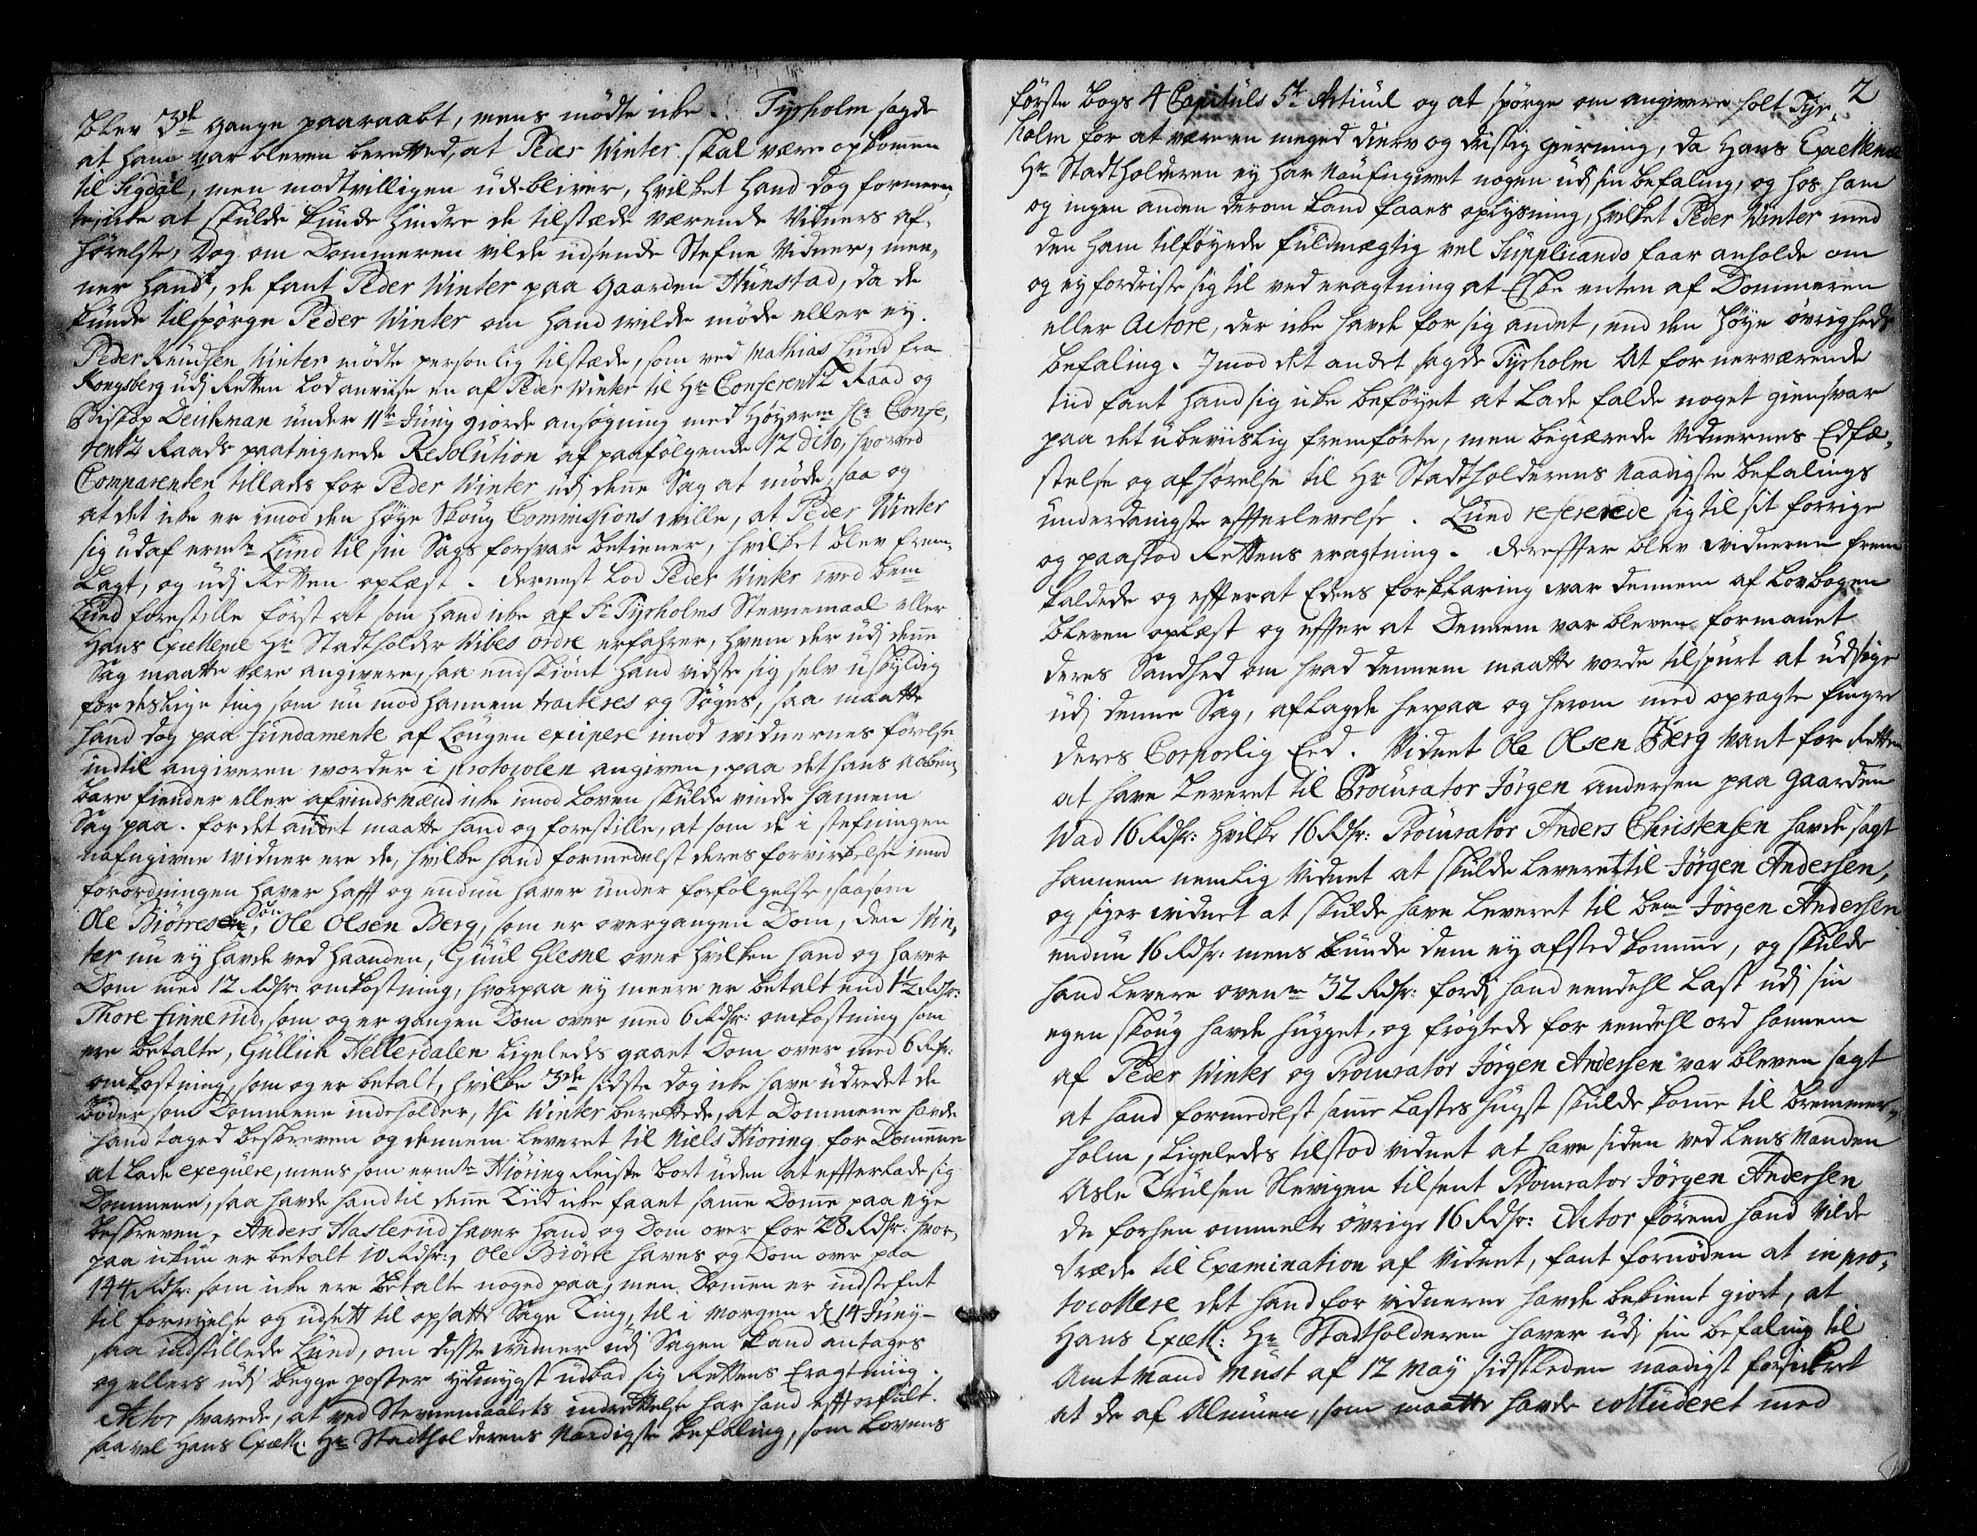 blev 3de gange paaraabt, mens mödte icke. Tyrholm sagde
at hand var bleven berettved, at Peder Winter skal være opkommen
til Sigdal, men modtvilligen udebliver, hvilket hand dog formeen,
te, icke at skulde kunde hindre de tilstæde værende Vidners af,
hörelse, Dog om Dommeren vilde udsende Stefne Vidner, men,
ner hand, de fant Peder Winter paa gaarden Hunstad, da de
kunde tilspörge Peder Winter om hand wilde möde eller ey.
Peder Knudsen Winter mödte personlig tilstæde, som ved Mathias Lund fra
Kongsberg udj Retten lod anviise en af Peder Winter til Hr Conferentz Raad og
Biskop Deichman under 11te Juny giorde ansögning med Höyerm. Hr Confe,
rentz Raads paateignede Resolution af paafölgende 12 dito, hvorved
Comparenten tillades for Peder Winter udj denne Sag at möde, saa og
at det icke er imod den höye Skoug Commissions wille, at Peder Winter
sig udaf ermte Lund til sin Sags forsvar betiener, hvilket blev frem,
lagt, og udj Retten oplæst. dernest lod Peder Winter ved bem
Lund forestille först at som hand icke af Sr Tyrholms Stevnemaal eller
Hans Excellence Hr Stadtholder Wibes ordre erfahrer, hvem der udj denne
Sag maatte være angivere, saa endskiönt hand vidste sig selv uskyldig
for deslige ting som nu mod hannem tracteres og Söges, saa maatte
hand dog paa fundamente af Lougen excipere imod widnernes förelse
indtil angiveren worder i protocolen angiven, paa det hans aaben,
bare fiender eller afvindsmænd icke imod Loven skulde vinde hannem
Sag paa. for det andet maatte hand og forestille, at som de i stefningen
nafngivne widner ere de, hvilke hand formedelst deres forvirkelse imod
forordningen haver hafft og endnu haver under forfölgelse, saasom
Ole Biörresen, Ole Olsen Berg, som er overgangen Dom, den Win,
ter nu ey havde ved haanden, Guul Glesne over hvilken hand og haver
Dom med 12 Rdlr: omkostning, hvorpaa ey meere er betalt end 1½ Rdlr:
Thore Finnerud, som og er gangen Dom over med 6 Rdlr: omkostning som
ere betalte, Gullich Hellerdalen ligeledes gaaet Dom over med 6 Rdr:
omkostning, som og er betalt, hvilke 3de sidste dog icke have udredet de
Böder som Dommene indeholder, thi Winter berettede, at Dommene havde
hand taged beskreven og dennem leveret til Niels Hiöring for Dommene
at lade exeqvere, mens som ermte Hiöring Reiste bort uden at effterlade sig
Dommene, saa havde hand til denne Tiid icke faaet samme Domme paa nye
beskreven, Anders Haslerud haver hand og Dom over for 28 Rdlr: hvor,
paa ickun er betalt 10 Rdlr:, Ole Biörke haves og Dom over paa
144 Rdr: som icke ere betalte noged paa, men Dommen er indstefnt
til fornyelse og udsett til opsatte Sage Ting, til i morgen d 14 Juny
saa indstillede Lund, om disse widner udj Sagen kand antages
og ellers udj begge poster ydmygst udbad sig Rettens Eragtning.
Actor svarede, at ved Stevnemaalets indrettelse har hand effterfult.
saa vel Hans Excell: Hr Stadtholderens Naadigste befaling, som Lovens
2
förste bogs 4 Capituls 5te Articul og at spörge om angivere holt Tyr,
holm for at være en meged dierv og dristig gierning, da Hans Excellence
Hr Stadtholderen ey har Naufngivet nogen udj sin befaling, og hos ham
og ingen anden derom kand faaes oplysning, hvilket Peder Winter med
den ham tilföyede fuldmægtig vel Supplicando faar anholde om
og ey fordriste sig til ved eragtning at Eske enten af Dommeren
eller Actore, der icke havde for sig andet, end den Höye övrigheds
befaling. Imod det andet sagde Tyrholm At for nerværende
tiid fant hand sig icke beföyet at lade falde noget giensvar
paa det ubeviislig fremförte, men begiærede Vidnernes Edfæ,
stelse og afhörelse til Hr Stadtholderens Naadigste befalings
underdanigste effterlevelse. Lund refererede sig til sit forrige
og paastod Rettens eragtning. Dereffter blev widnerne frem
kaldede og effterat Edens forklaring war dennem af Lovbogen
bleven oplæst og effter at Dennem var bleven formanet
deres Sandhed om hvad dennem maatte vorde tilspurt at udsige
udj denne Sag, aflagde herpaa og herom med opragte fingre
deres Corporlig Eed. Vidnet Ole Olsen Berg Vant for Retten
at have Leveret til Procurator Jörgen Andersen paa gaarden
Wad 16 Rdlr: hvilke 16 Rdlr: Procurator Anders Christensen havde sagt
hannem nemlig Vidnet at skulde leveret til Jörgen Andersen,
og siger widnet at skulde have leveret til bem Jörgen Andersen
endnu 16 Rdlr: mens kunde dem ey afsted komme, og skulde
hand levere ovenm 32 Rdlr: fordj hand eendehl Last udj sin
egen skoug havde hugget, og frögtede for eendehl ord hannem
af Peder Winter og Procurator Jörgen Andersen var bleven sagt
at hand formedelst samme Lastes hugst skulde komme til Bremmer,
holm, ligeledes tilstod vidnet at have siden ved Lens Manden
Asle Trulsen Skevigen tilsent Procurator Jörgen Andersen
de forhen ommelte övrige 16 Rdlr: Actor förend hand Vilde
træde til Examination af Vidnet, fant fornöden at in pro,
tocollere det hand for vidnerne havde bekient giort, at
Hans Excell: Hr Stadtholderen haver udj sin befaling til
Amtmand Must af 12 May sidstleden naadigst forsickret
at de af Almuen, som maatte havde colluderet med